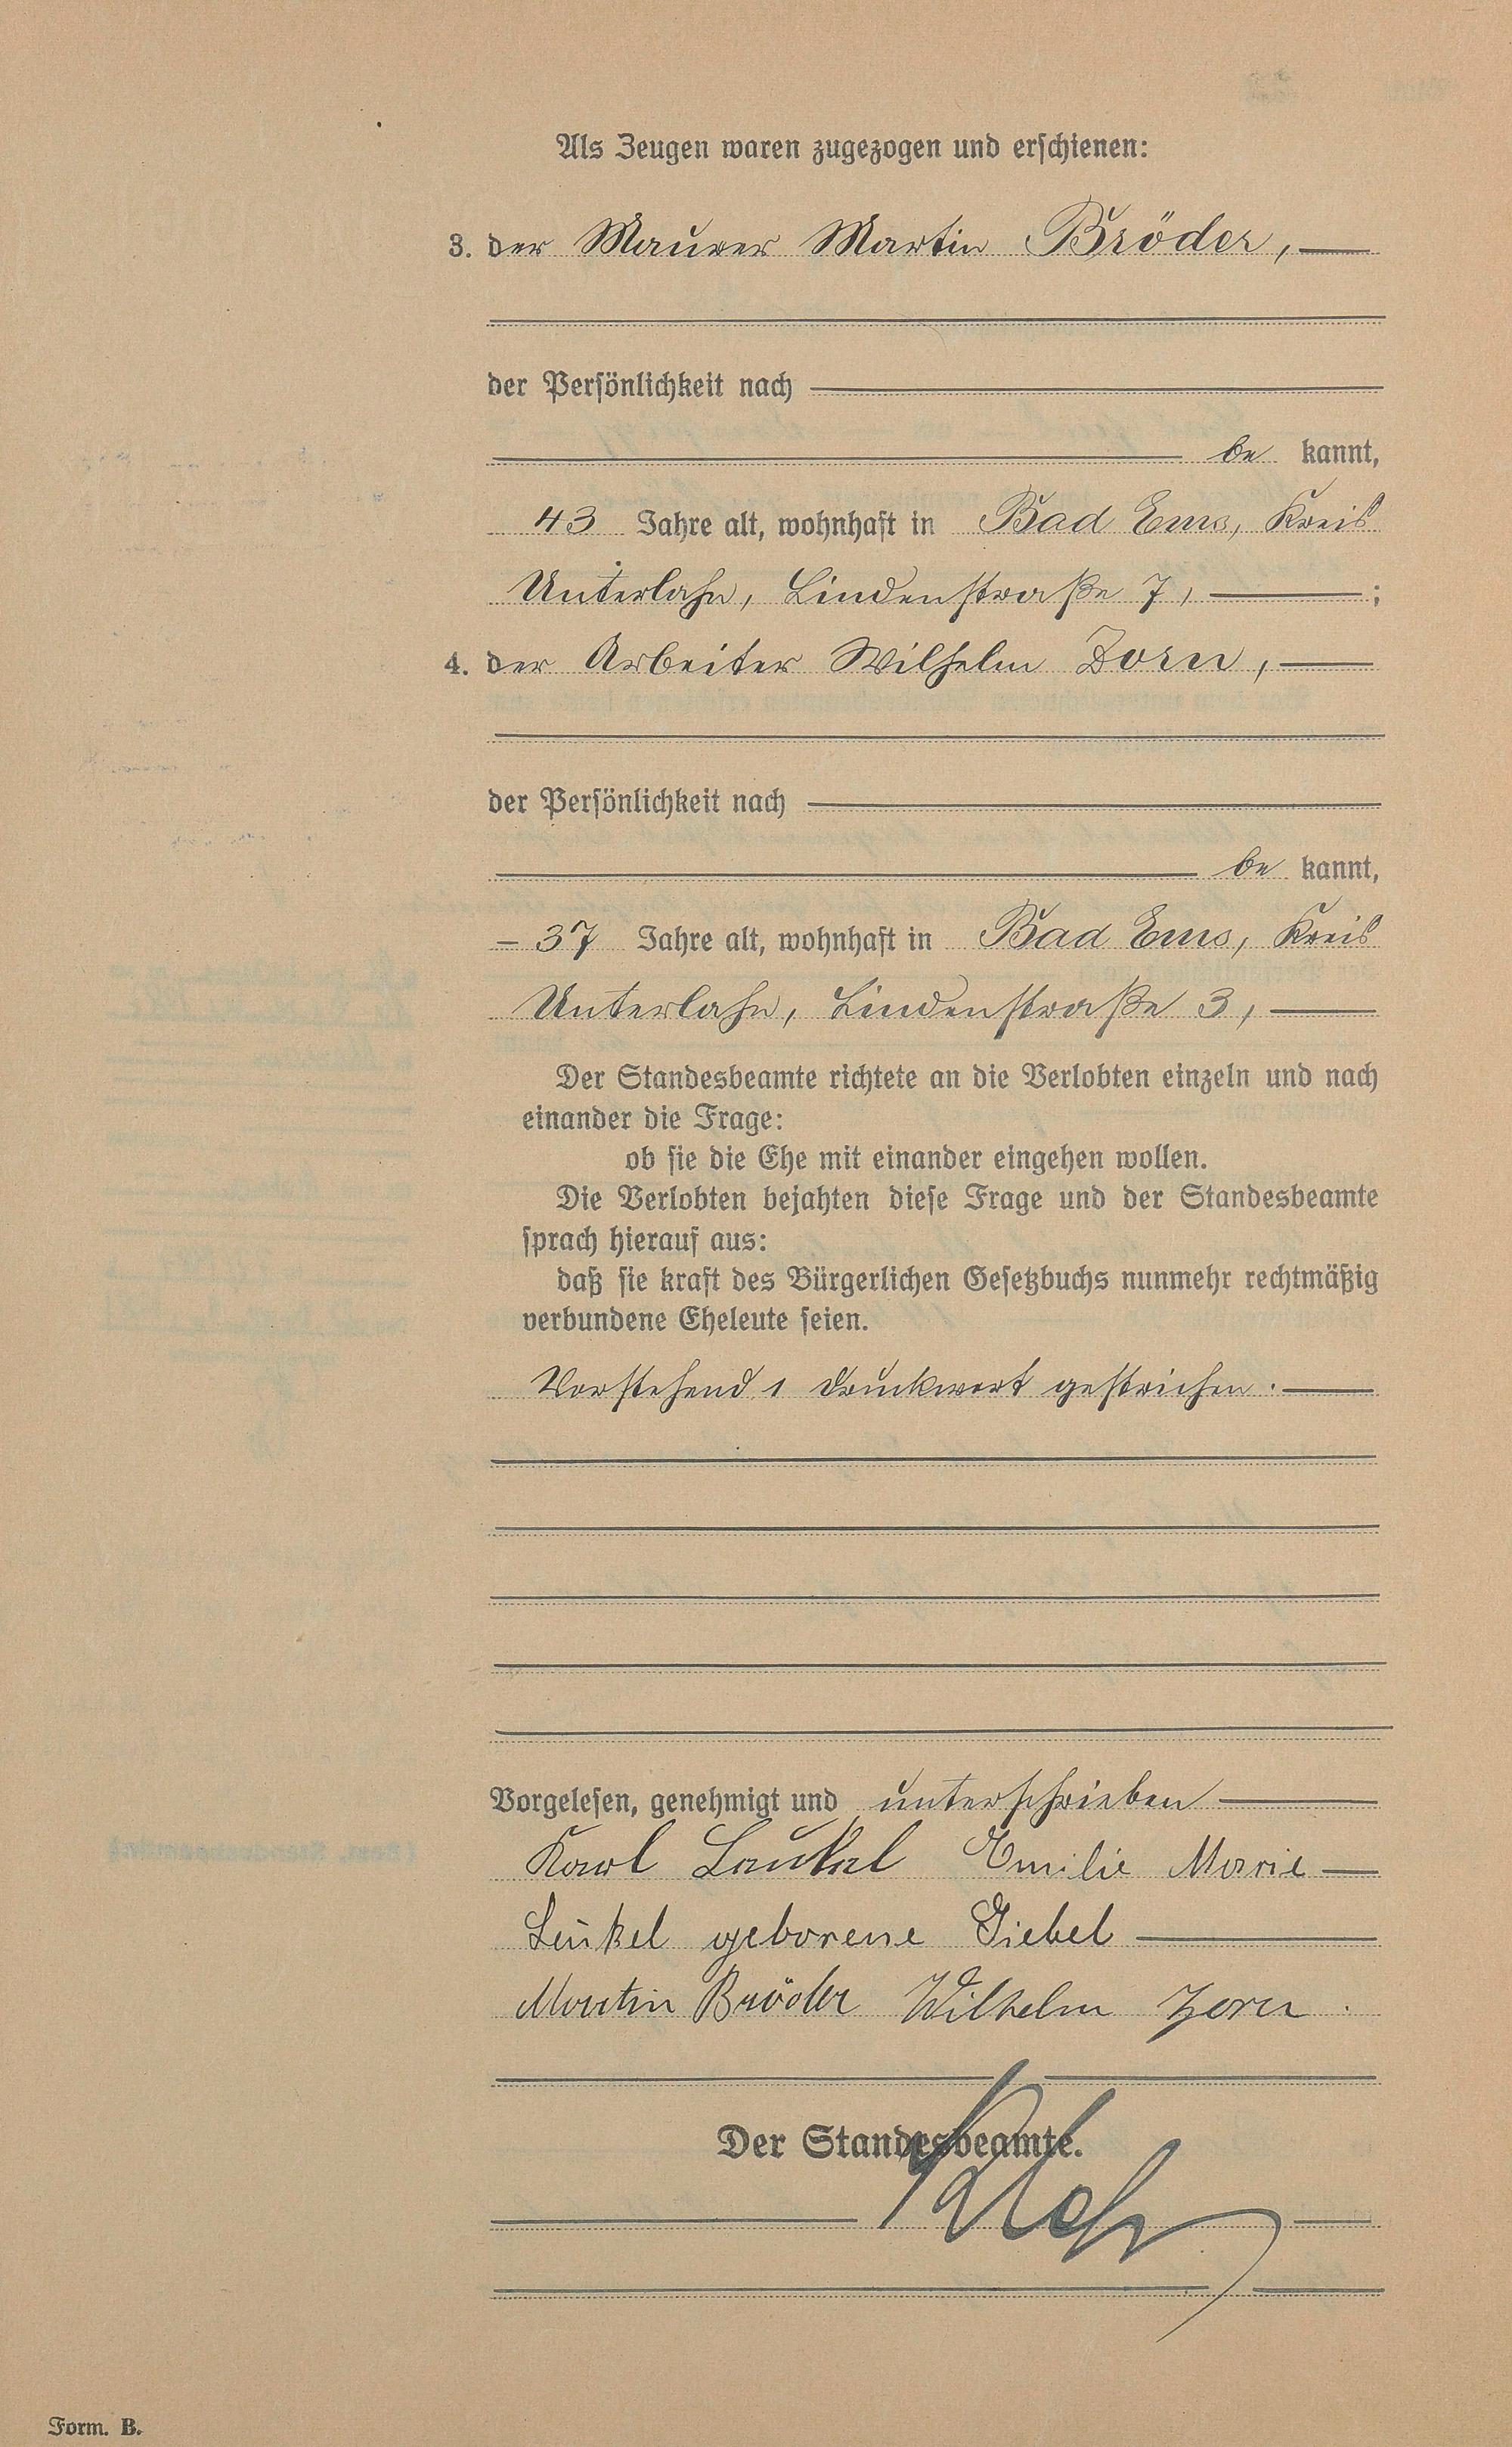 Als Zeugen waren zugezogen und erschienen:
3. der Maurer Martin Bröder,
der Persönlichkeit nach
be kannt,
43 Jahre alt, wohnhaft in Bad Ems, Kreis
Unterlahn, Lindenstraße 7, ;
4. der Arbeiter Wilhelm Zorn,
der Persönlichkeit nach
be kannt,
37 Jahre alt, wohnhaft in Bad Ems, Kreis
Unterlahn, Lindenstraße 3,
Der Standesbeamte richtete an die Verlobten einzeln und nach
einander die Frage:
ob sie die Ehe mit einander eingehen wollen.
Die Verlobten bejahten diese Frage und der Standesbeamte
sprach hierauf aus:
daß sie kraft des Bürgerlichen Gesetzbuchs nunmehr rechtmäßig
verbundene Eheleute seien.
Vorstehend 1 Druckwort gestrichen.
Vorgelesen, genehmigt und unterschrieben
Karl Emilie Marie
geborene Giebel
Martin Bröder Wilhelm Zorn.
Der Standesbeamte.
Form. B.